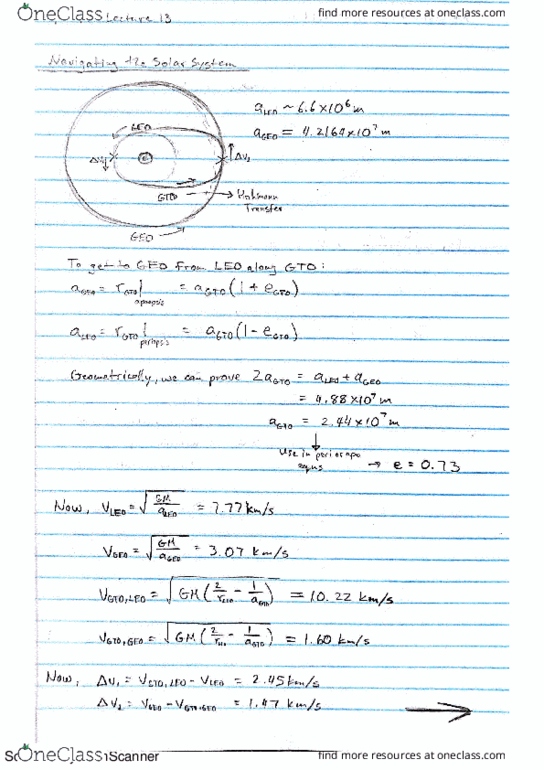 OneClass
find more resources at oneclass.com
Lecture 13
Navigating the Solar System
a_LEO ~ 6.6×10⁶ m
a_GEO = 4.2164×10⁷ m
LEO
ΔV₁
E
ΔV₂
GTO → Hohmann Transfer
GEO
To get to GEO from LEO along GTO:
a_GEO = r_GTO|apoapsis = a_GTO(1 + e_GTO)
a_LEO = r_GTO|periapsis = a_GTO(1 - e_GTO)
Geometrically, we can prove 2a_GTO = a_LEO + a_GEO
= 4.88×10⁷ m
a_GTO = 2.44×10⁷ m
Use in peri or apo eqns → e = 0.73
Now, V_LEO = √(GM/a_LEO) = 7.77 km/s
V_GEO = √(GM/a_GEO) = 3.07 km/s
V_GTO,LEO = √(GM(2/r - 1/a_GTO)) = 10.22 km/s
V_GTO,GEO = √(GM(2/r - 1/a_GTO)) = 1.60 km/s
Now, ΔV₁ = V_GTO,LEO - V_LEO = 2.45 km/s
ΔV₂ = V_GEO - V_GTO,GEO = 1.47 km/s
OneClass
Scanner
find more resources at oneclass.com